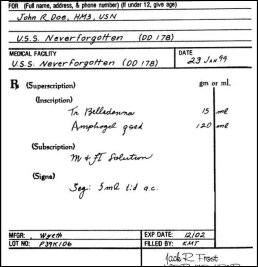 FOR (Full name, address, & phone number) (If under 12, give age)
John R. Doe, HM3, USN
U.S.S. Neverforgotten (DD 178)
MEDICAL FACILITY
U.S.S. Neverforgotten (DD 178)
DATE
23 Jan 99
℞ (Superscription)
gm or ml.
(Inscription)
Tr Belladonna 15 ml
Amphogel qsad 120 ml
(Subscription)
M & Ft Solution
(Signa)
Sig: 5ml tid a.c.
MFGR: Wyeth
EXP DATE: 12/02
LOT NO: P39K106
FILLED BY: KMT
Jack R. Frost